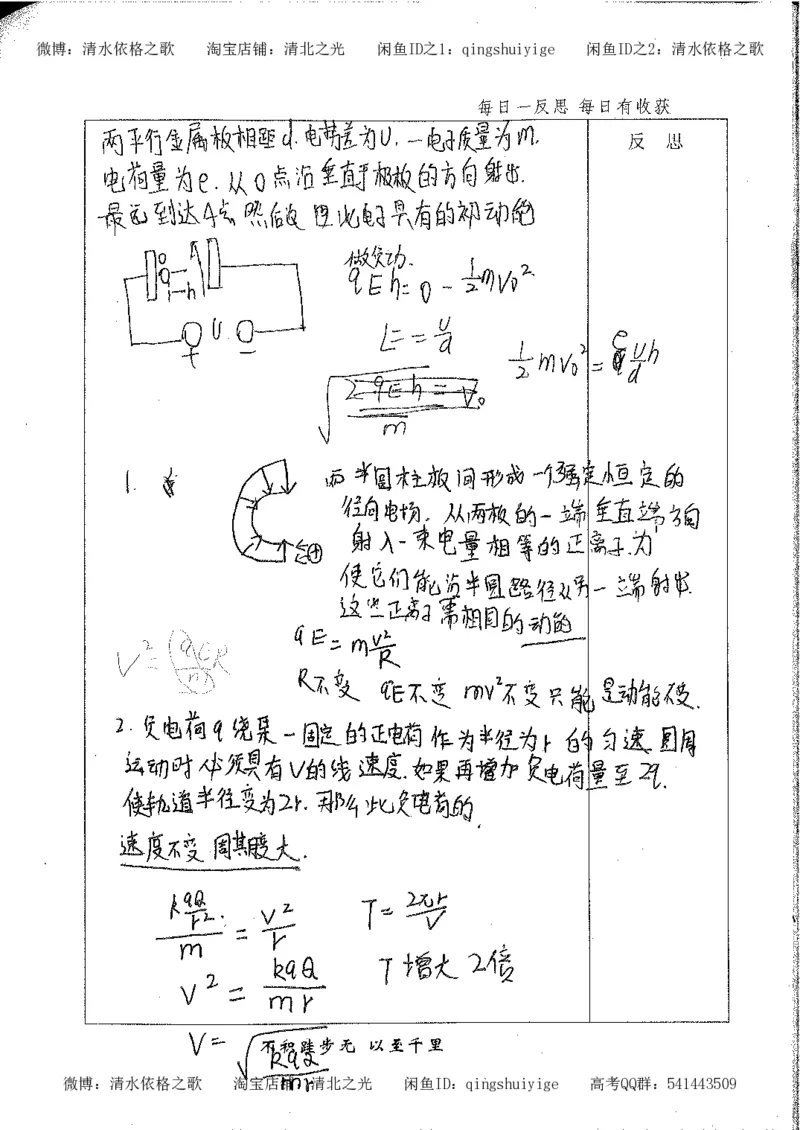 微博：清水依格之歌 淘宝店铺：清北之光 闲鱼ID之1：qingshuiyige 闲鱼ID之2：清水依格之歌
每日一反思 每日有收获
反 思
两平行金属板相距d.电势差为U.一电子质量为m.
电荷量为e.从O点沿垂直于极板的方向射出.
最远到达A点 然后返回 此电子具有的初动能
O A
h
U
+ −
做负功.
qEh=0-½mv₀²
E==U/d
½mv₀²=e(U/d)h
√(2qEh/m)=v₀
1.
两半圆柱板间形成一个强定恒定的
径向电场. 从两板的一端垂直端方向
射入一束电量相等的正离子.为
使它们能沿半圆路径从另一端射出.
这些正离子需相同的动能
qE=mv²/R
v²=(qER/m)
R不变 qE不变 mv²不变只能是动能不变.
2.负电荷q绕某一固定的正电荷作为半径为r的匀速圆周
运动时必须具有V的线速度.如果再增加负电荷量至2q.
使轨道半径变为2r.那么此负电荷的
速度不变 周期变大.
(kqQ/r²)/m=v²/r
T=2πr/v
v²=kqQ/mr
T增大2倍
v=√(kqQ/mr)
不积跬步无 以至千里
微博：清水依格之歌 淘宝店铺：清北之光 闲鱼ID：qingshuiyige 高考QQ群：541443509